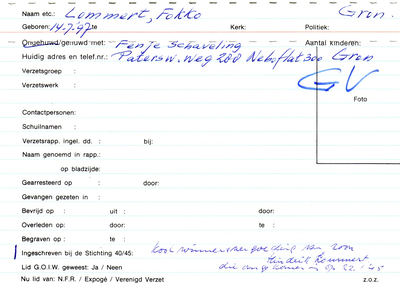 Naam etc.: Lommert, Fokko Gron.
Geboren: 14.7.97 te Kerk: Politiek:
Ongehuwd/gehuwd met: Fenje Schaveling Aantal kinderen:
Huidig adres en telef.nr.: Patersw.weg 280 Neboflat 300 Gron
Verzetsgroep :
Verzetswerk : GV
Foto
Contactpersonen:
Schuilnamen :
Verzetsrapp. ingel. dd. : bij:
Naam genoemd in rapp.:
op bladzijde:
Gearresteerd op : door:
Gevangen gezeten in :
Bevrijd op : uit : door:
Overleden op: door: te :
Begraven op : te :
Ingeschreven bij de Stichting 40/45: van zoon
Hindrik Lommert
Lid G.O.I.W. geweest: Ja / Neen die omgekomen is
Nu lid van: N.F.R. / Expogé / Verenigd Verzet z.o.z.